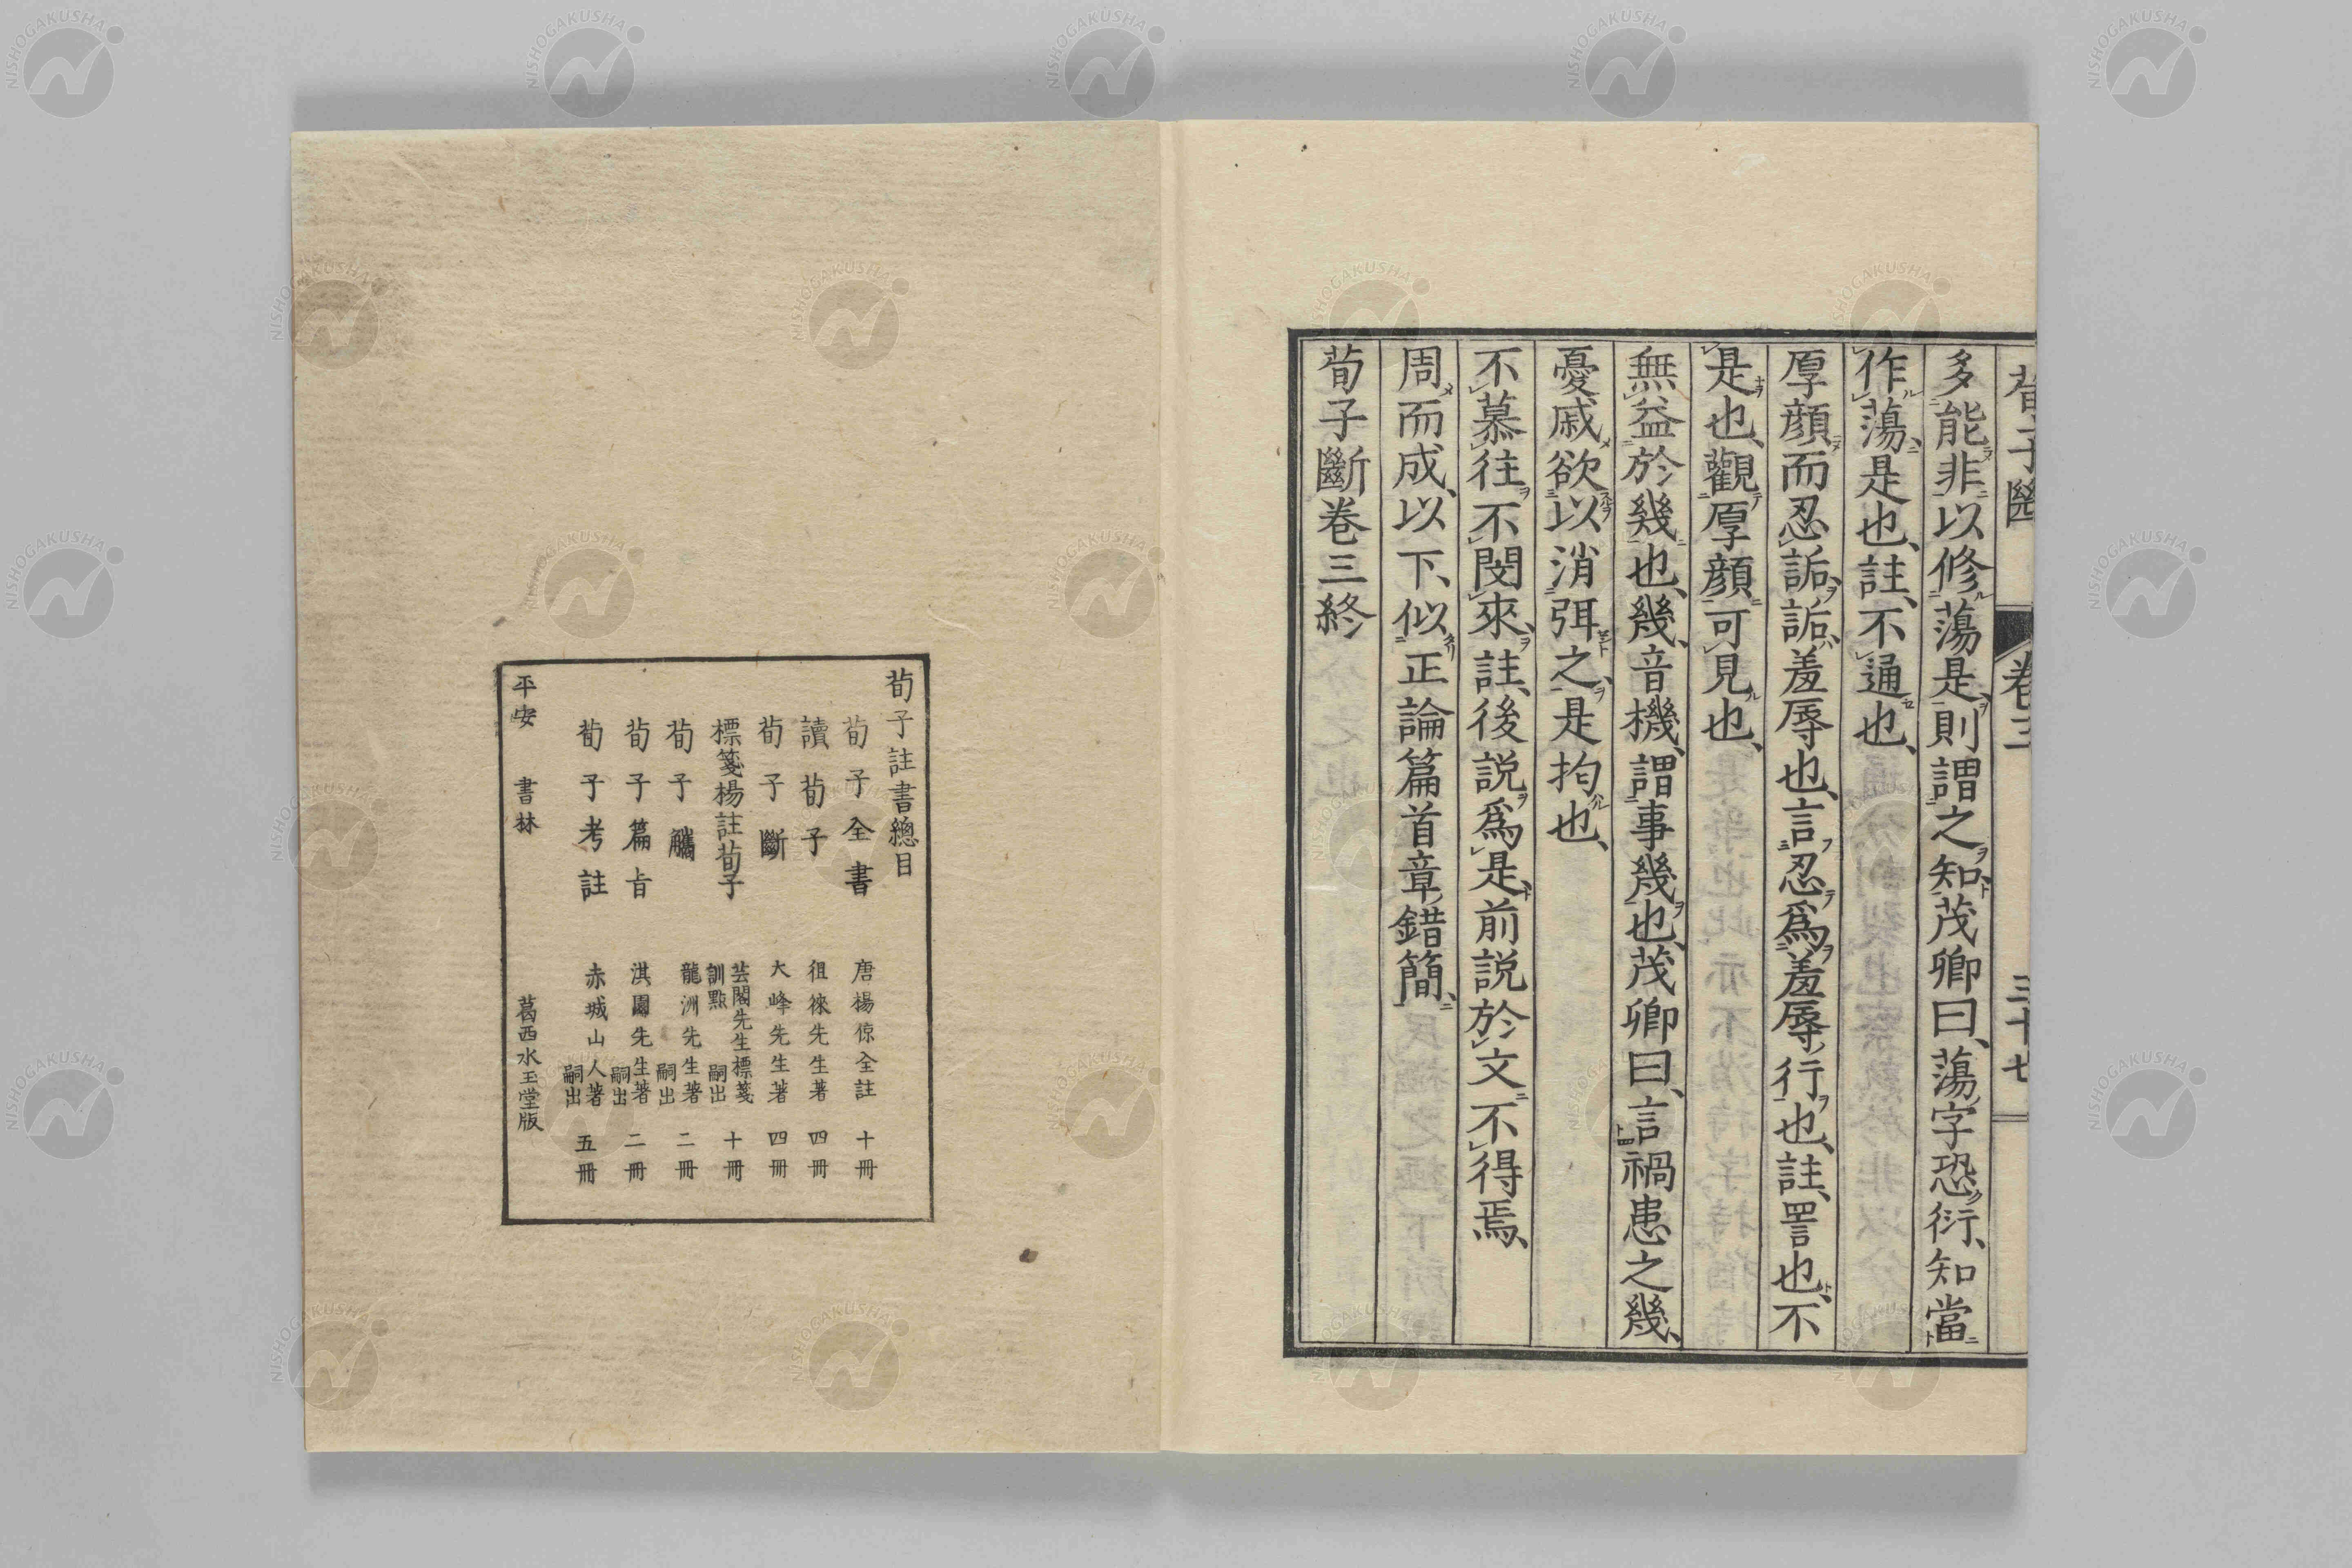 荀子斷 卷三 三十七
多能非以修蕩是則謂之知茂卿曰、蕩字恐衍、知當
作蕩是也、註、不通也、
厚顔而忍詬、詬羞辱也、言忍爲羞辱行也、註、詈也、不
是也、觀厚顔可見也、
無益於幾也、幾、音機、謂事幾也、茂卿曰、言禍患之幾、
憂戚欲以消弭之、是拘也、
不慕往、不閔來、註、後説爲是、前説於文不得焉、
周而成、以下、似正論篇首章錯簡、
荀子斷卷三終
荀子註書總目
荀子全書 唐楊倞全註 十冊
讀荀子 徂徠先生著 四冊
荀子斷 大峰先生著 四冊
標箋楊註荀子 芸閣先生標箋訓點 嗣出 十冊
荀子觿 龍洲先生著 嗣出 二冊
荀子篇旨 淇園先生著 嗣出 二冊
荀子考註 赤城山人著 嗣出 五冊
平安 書林 葛西水玉堂版
NISHOGAKUSHA